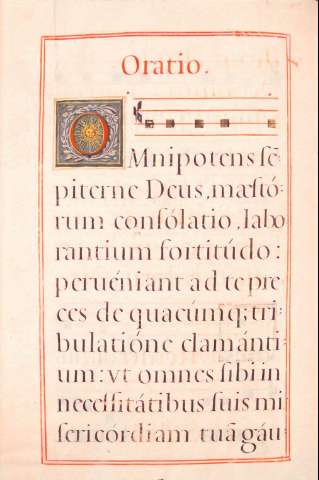 Oratio.
OMnipotens sẽ-
piterne Deus, mæstó-
rum consólatio, labo
rantium fortitúdo:
peruéniant ad te pre
ces de quacúmq; tri-
bulatióne clamánti-
um: vt omnes sibi in
necessitátibus suis mi
sericórdiam tuã gáu-